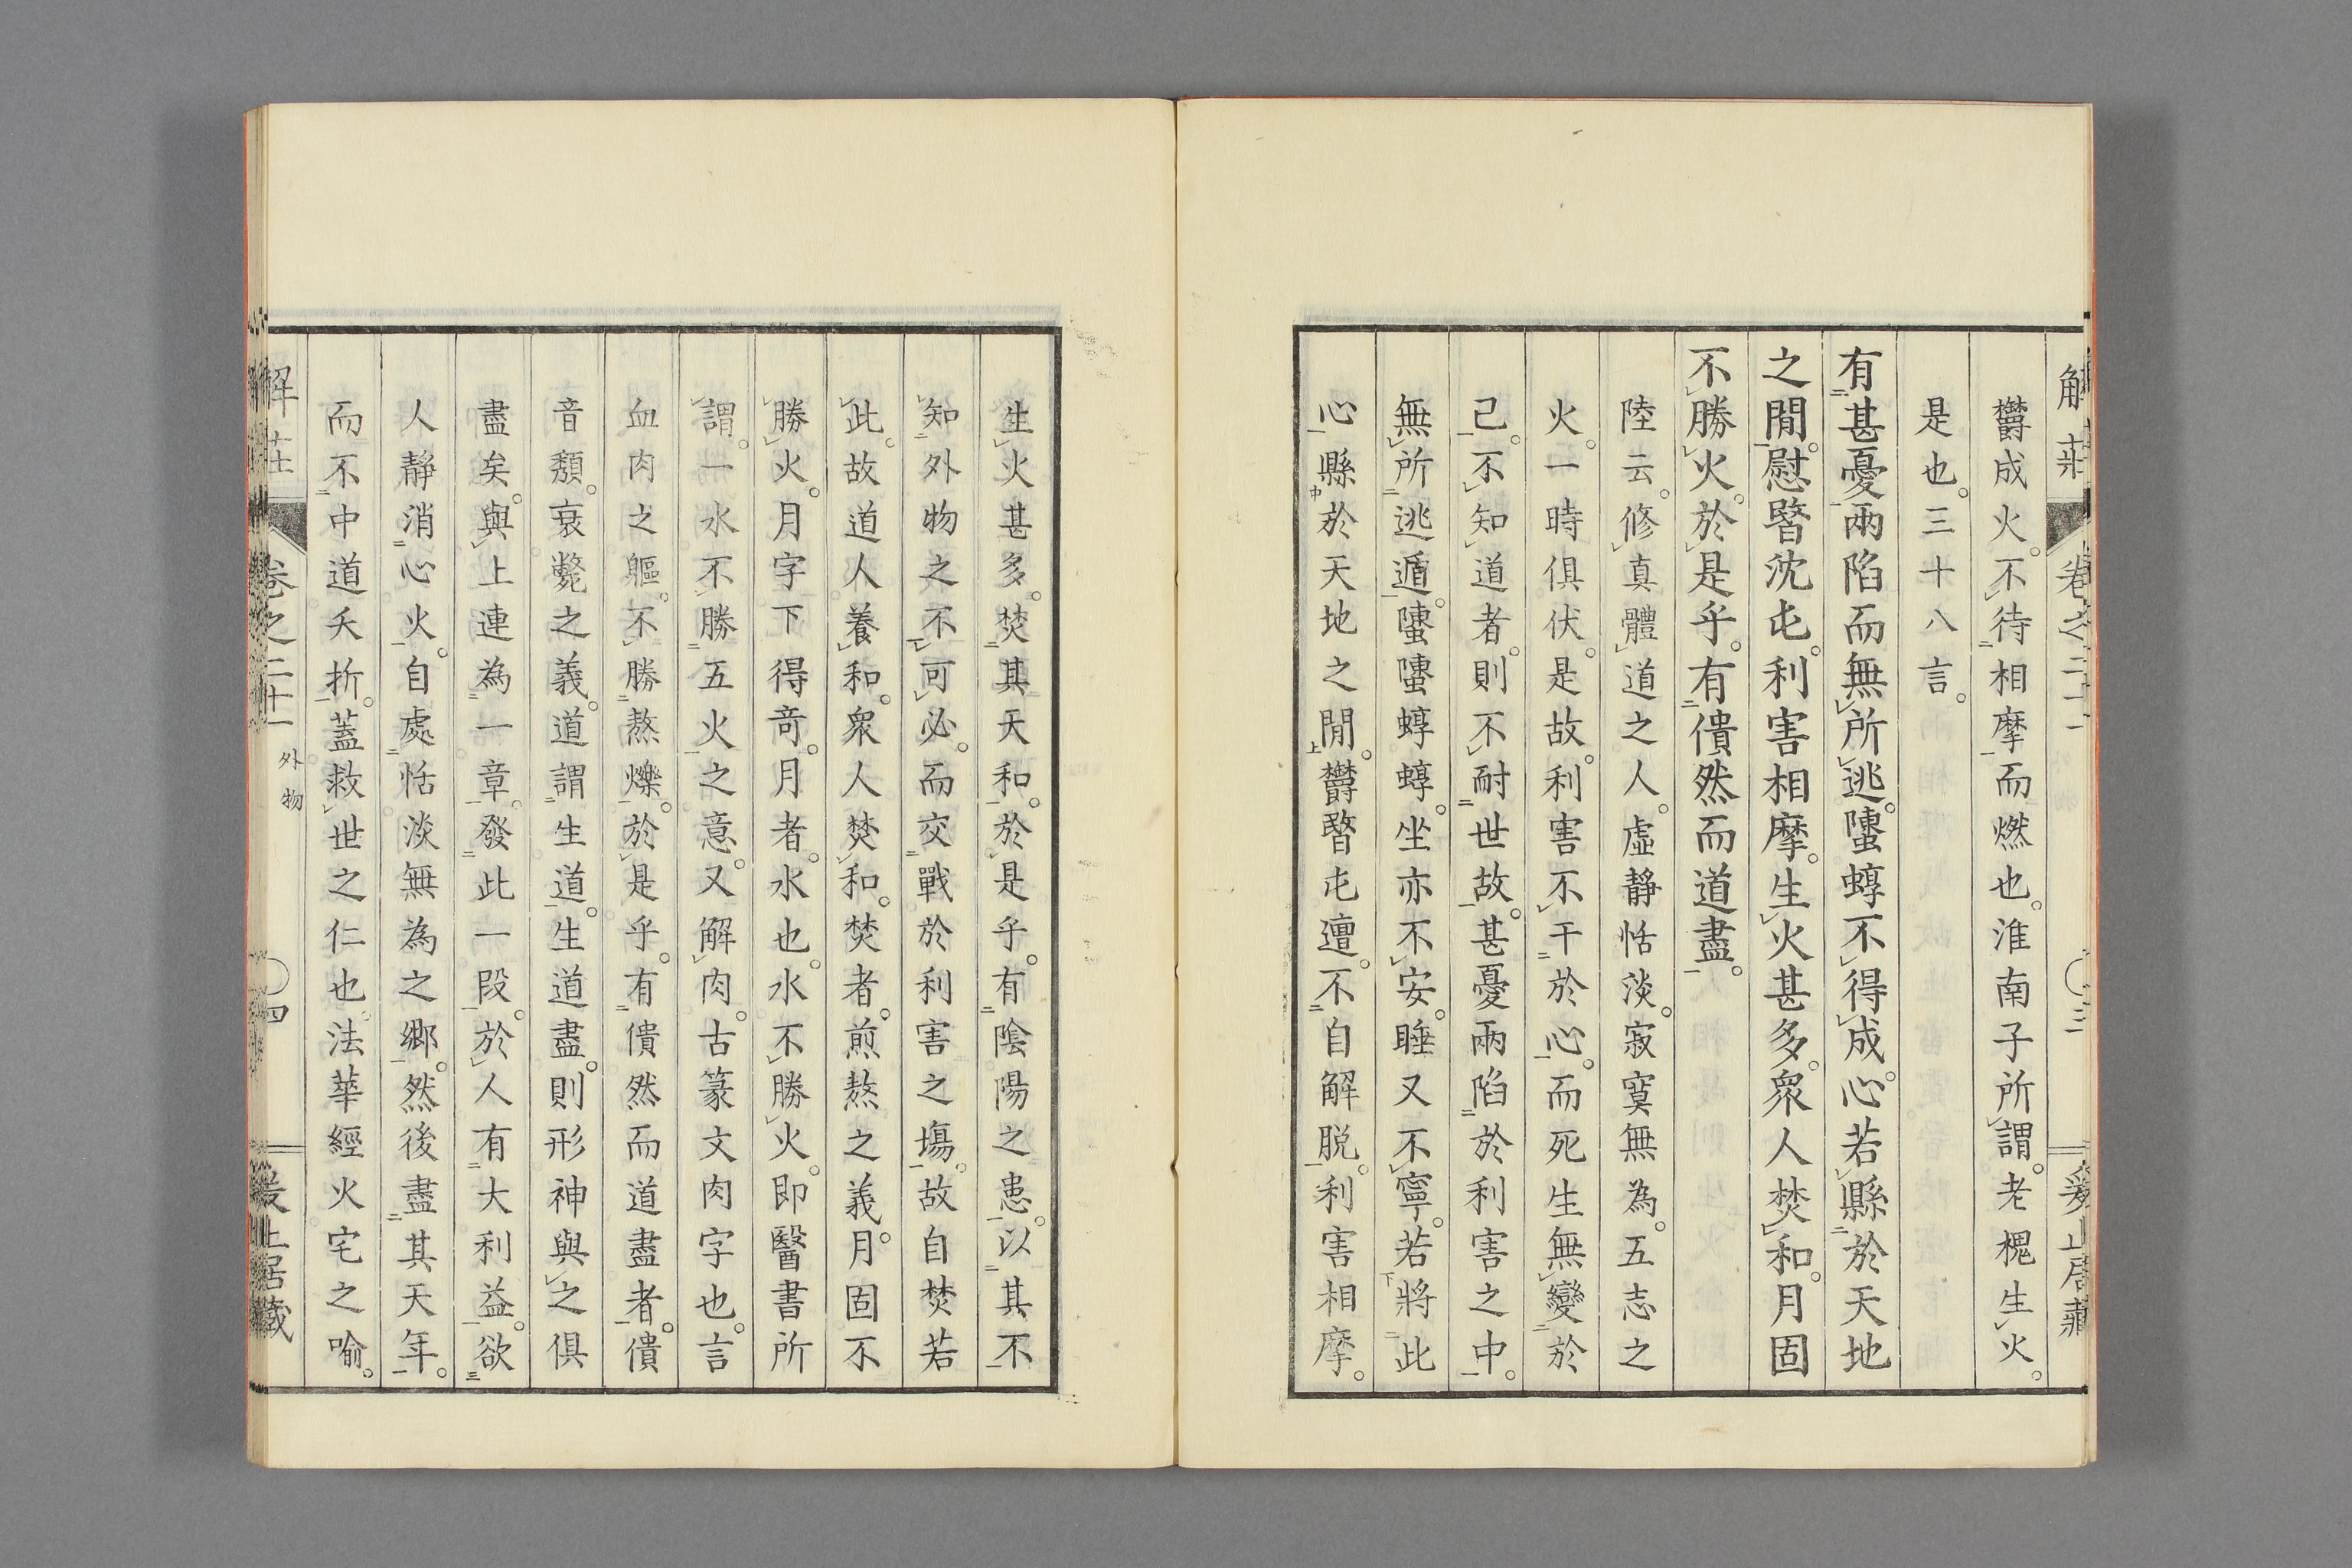 解莊 卷之二十一 〇三
欝成火。不待相摩而燃也。淮南子所謂。老槐生火。
是也。三十八言。
有甚憂兩陷而無所逃。䗥蜳不得成。心若縣於天地
之閒。慰暋沈屯。利害相摩。生火甚多。衆人焚和。月固
不勝火。於是乎。有僓然而道盡。
陸云。修真體道之人。虛靜恬淡。寂寞無為。五志之
火。一時俱伏。是故。利害不干於心。而死生無變於
己。不知道者。則不耐世故。甚憂兩陷於利害之中。
無所逃遁。䗥䗥蜳蜳。坐亦不安。睡又不寧。若將此
心縣於天地之閒。欝暋屯邅。不自解脱。利害相摩。
生火甚多。焚其天和。於是乎。有陰陽之患。以其不
知外物之不可必。而交戰於利害之塲。故自焚若
此。故道人養和。衆人焚和。焚者。煎熬之義。月固不
勝火。月字下得奇。月者。水也。水不勝火。即醫書所
謂。一水不勝五火之意。又解肉。古篆文肉字也。言
血肉之軀。不勝熬爍。於是乎。有僓然而道盡者。僓
音頽。衰斃之義。道謂生道。生道盡。則形神與之俱
盡矣。與上連為一章。發此一段。於人有大利益。欲
人靜消心火。自處恬淡無為之鄉。然後盡其天年。
而不中道夭折。蓋救世之仁也。法華經火宅之喻。
解莊 卷之二十一 外物 〇四